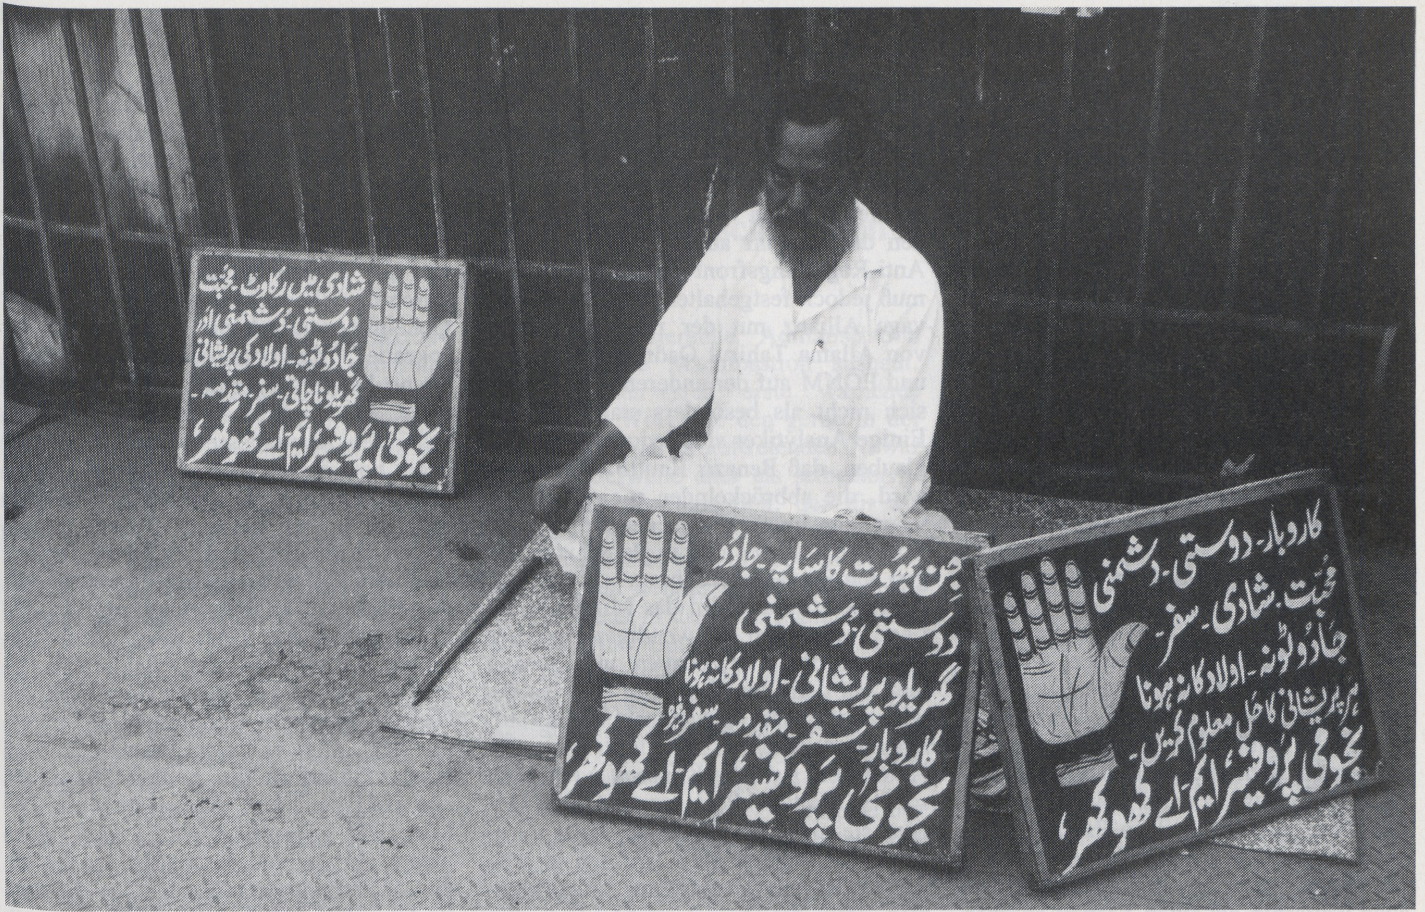 شادی میں رکاوٹ۔ محبّت
دوستی۔ دُشمنی اور
جَادُو ٹونہ۔ اولاد کی پریشانی
گھریلو ناچاقی۔ سفر۔ مقدمہ۔
نجومی پَروفیسَر ایم اے کھوکھر،
جِن بھُوت کا سَایہ۔ جادُو
دوستی۔ دُشمنی
گھریلو پریشانی۔ اولاد کا نہ ہونا
کاروبار۔ سفر۔ مقدمہ۔ سفر
نجومیُ پَروفیسَر ایم۔اے کھوکھر،
کاروبار۔ دوستی۔ دشمنی
محبّت۔ شادی۔ سفر۔
جَادُو ٹونہ۔ اولاد کا نہ ہونا
ہر پریشانی کا حَل معلوم کریں۔
نجومی پَروفیسَر ایم۔اے کھوکھر،